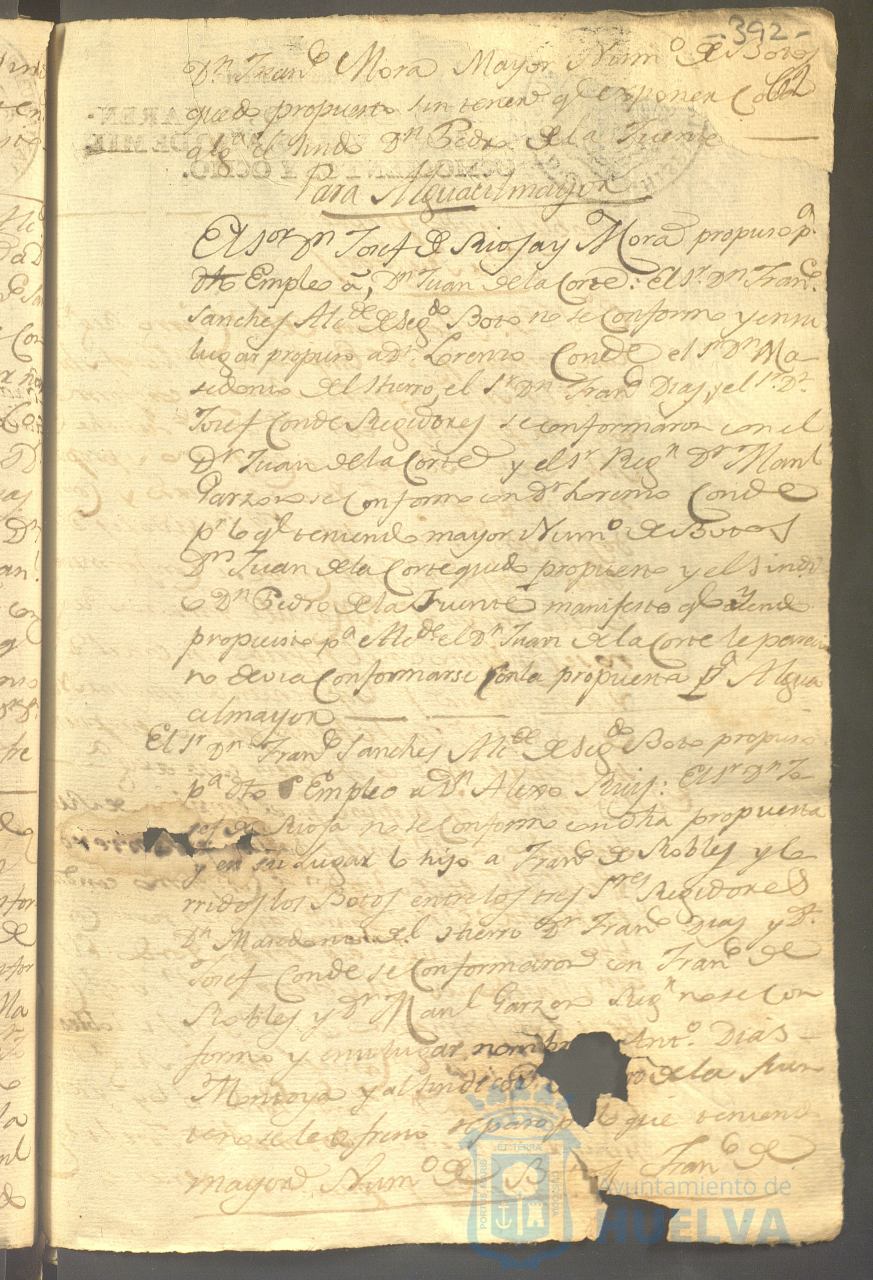 -392-
Dn. Frano. Mora Mayor Numo. de Botos
quedo propuesto sin tener ql. exponer
el Sindo. Dn. Pedro de la Fuente
Para Alguacil mayor
El Sor. Dn. Josef de Rioja y Mora propuso pa.
dho Empleo a, Dn. Juan de la Corte: El Sr. Dn. Franco.
Sanches Alcde. de Sego. Boto no se conformo y en su
lugar propuso a Dn. Lorenzo Conde el Sr. Dn. Ma-
sedonio del Hierro, el Sr. Dn. Franco. Dias, y el Sr. Dn.
Josef Conde Regidores se conformaron con el
Dn. Juan de la Corte y el Sr. Regr. Dn. Manl.
Garzon se conformo con Dn. Lorenzo Conde
pr. lo ql. teniendo mayor Numo. de Botos
Dn. Juan de la Corte quedo propuesto y el Sindi
co Dn. Pedro de la Fuente manifesto ql.
propuesto pa. Alcde. el Dn. Juan de la Corte le parecia
no devia conformarse con la propuesta pa. Algua
cil mayor
El Sr. Dn. Franco. Sanches Alcde. de Sego. Boto propuso
pa. dho Empleo a Dn. Alexo Ruiz: El Sr. Dn. Jo-
sef de Rioja no se conformo con dha propuesta
y en su lugar lo hiso a Franco. de Robles y co
rridos los Botos entre los tres Sres. Regidores
Dn. Macedonio del Hierro Dn. Franco. Dias y Dn.
Josef Conde se conformaron con Franco. de
Robles y Dn. Manl. Garzon Regr. no se con
formo y en su lugar nombro Anto. Dias
Montoya y al Sindico de la Fuen
te no se le ofrecio reparo pr. lo que teniendo
mayor Numo. de Botos Franco. de
PORTUS MARIS ET TERRÆ CUSTODIA
Ayuntamiento de
HUELVA